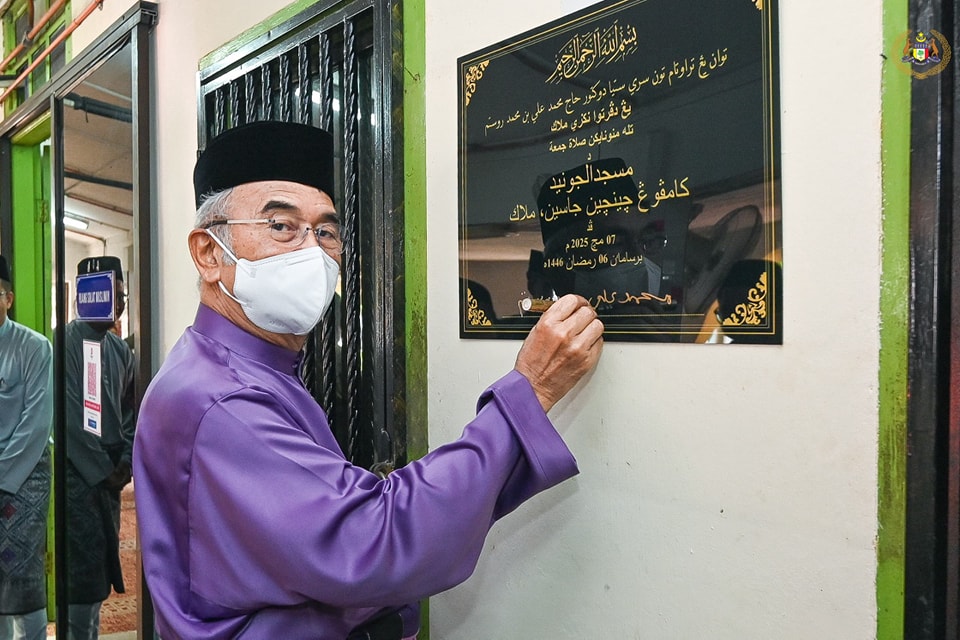 بسم الله الرحمن الرحيم
توان يڠ تراوتام تون سري ستيا دوكتور حاج محمد علي بن محمد روستم
يڠ دڤرتوا نݢري ملاك
تله منونايكن صلاة جمعة
د
مسجد الجونيد
كامڤوڠ چينچين جاسين، ملاك
ڤد
07 مچ 2025م
برسامان 06 رمضان 1446ه
محمد علي
RUANG SOLAT MUSLIMIN